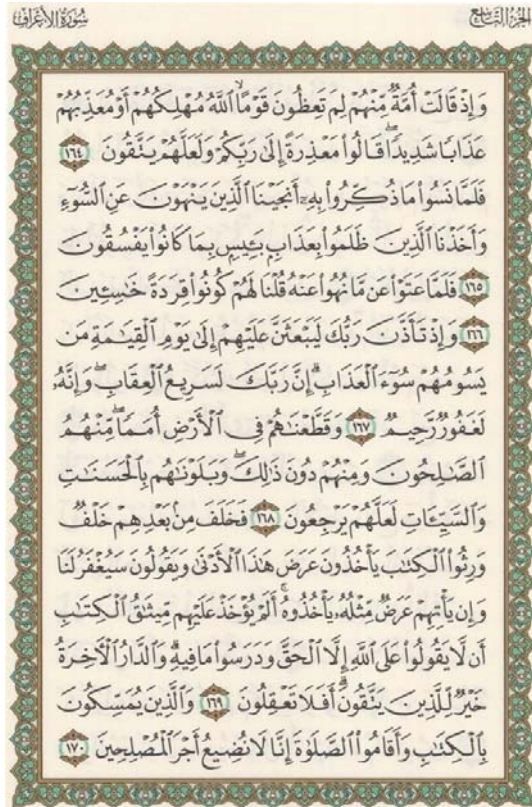 الجزء التاسع
سورة الأعراف
وَإِذْ قَالَتْ أُمَّةٌ مِّنْهُمْ لِمَ تَعِظُونَ قَوْمًا ۙ اللَّهُ مُهْلِكُهُمْ أَوْ مُعَذِّبُهُمْ
عَذَابًا شَدِيدًا ۖ قَالُوا مَعْذِرَةً إِلَىٰ رَبِّكُمْ وَلَعَلَّهُمْ يَتَّقُونَ ١٦٤
فَلَمَّا نَسُوا مَا ذُكِّرُوا بِهِ أَنجَيْنَا الَّذِينَ يَنْهَوْنَ عَنِ السُّوءِ
وَأَخَذْنَا الَّذِينَ ظَلَمُوا بِعَذَابٍ بَئِيسٍ بِمَا كَانُوا يَفْسُقُونَ
١٦٥ فَلَمَّا عَتَوْا عَن مَّا نُهُوا عَنْهُ قُلْنَا لَهُمْ كُونُوا قِرَدَةً خَاسِئِينَ
١٦٦ وَإِذْ تَأَذَّنَ رَبُّكَ لَيَبْعَثَنَّ عَلَيْهِمْ إِلَىٰ يَوْمِ الْقِيَامَةِ مَن
يَسُومُهُمْ سُوءَ الْعَذَابِ ۗ إِنَّ رَبَّكَ لَسَرِيعُ الْعِقَابِ ۖ وَإِنَّهُ
لَغَفُورٌ رَّحِيمٌ ١٦٧ وَقَطَّعْنَاهُمْ فِي الْأَرْضِ أُمَمًا ۖ مِّنْهُمُ
الصَّالِحُونَ وَمِنْهُمْ دُونَ ذَٰلِكَ ۖ وَبَلَوْنَاهُم بِالْحَسَنَاتِ
وَالسَّيِّئَاتِ لَعَلَّهُمْ يَرْجِعُونَ ١٦٨ فَخَلَفَ مِن بَعْدِهِمْ خَلْفٌ
وَرِثُوا الْكِتَابَ يَأْخُذُونَ عَرَضَ هَٰذَا الْأَدْنَىٰ وَيَقُولُونَ سَيُغْفَرُ لَنَا
وَإِن يَأْتِهِمْ عَرَضٌ مِّثْلُهُ يَأْخُذُوهُ ۚ أَلَمْ يُؤْخَذْ عَلَيْهِم مِّيثَاقُ الْكِتَابِ
أَن لَّا يَقُولُوا عَلَى اللَّهِ إِلَّا الْحَقَّ وَدَرَسُوا مَا فِيهِ ۗ وَالدَّارُ الْآخِرَةُ
خَيْرٌ لِّلَّذِينَ يَتَّقُونَ ۗ أَفَلَا تَعْقِلُونَ ١٦٩ وَالَّذِينَ يُمَسِّكُونَ
بِالْكِتَابِ وَأَقَامُوا الصَّلَاةَ إِنَّا لَا نُضِيعُ أَجْرَ الْمُصْلِحِينَ ١٧٠